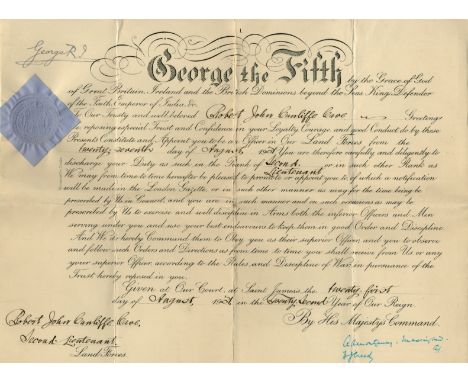 George R I
George the Fifth by the Grace of God
of Great Britain, Ireland and the British Dominions beyond the Seas King, Defender
of the Faith, Emperor of India, &c.
To Our Trusty and well beloved Robert John Greeting
We reposing especial Trust and Confidence in your Loyalty, Courage, and good Conduct do by these
Presents Constitute and Appoint you to be an Officer in Our Land Forces from the
day of August You are therefore carefully and diligently to
discharge your Duty as such in the Rank of Second Lieutenant or in such other Rank as
We may from time to time hereafter be pleased to promote or appoint you to, of which a notification
will be made in the London Gazette, or in such other manner as may for the time being be
prescribed by Us in Council, and you are in such manner and on such occasions as may be
prescribed by Us to exercise and well discipline in Arms both the inferior Officers and Men
serving under you and use your best endeavours to keep them in good Order and Discipline.
And We do hereby Command them to Obey you as their superior Officer, and you to observe
and follow such Orders and Directions as from time to time you shall receive from Us, or any
your superior Officer, according to the Rules and Discipline of War, in pursuance of the
Trust hereby reposed in you.
Given at Our Court, at Saint James's, the twenty first
day of August 193 in the twenty second Year of Our Reign
By His Majesty's Command.
Robert John
Second Lieutenant
Land Forces.